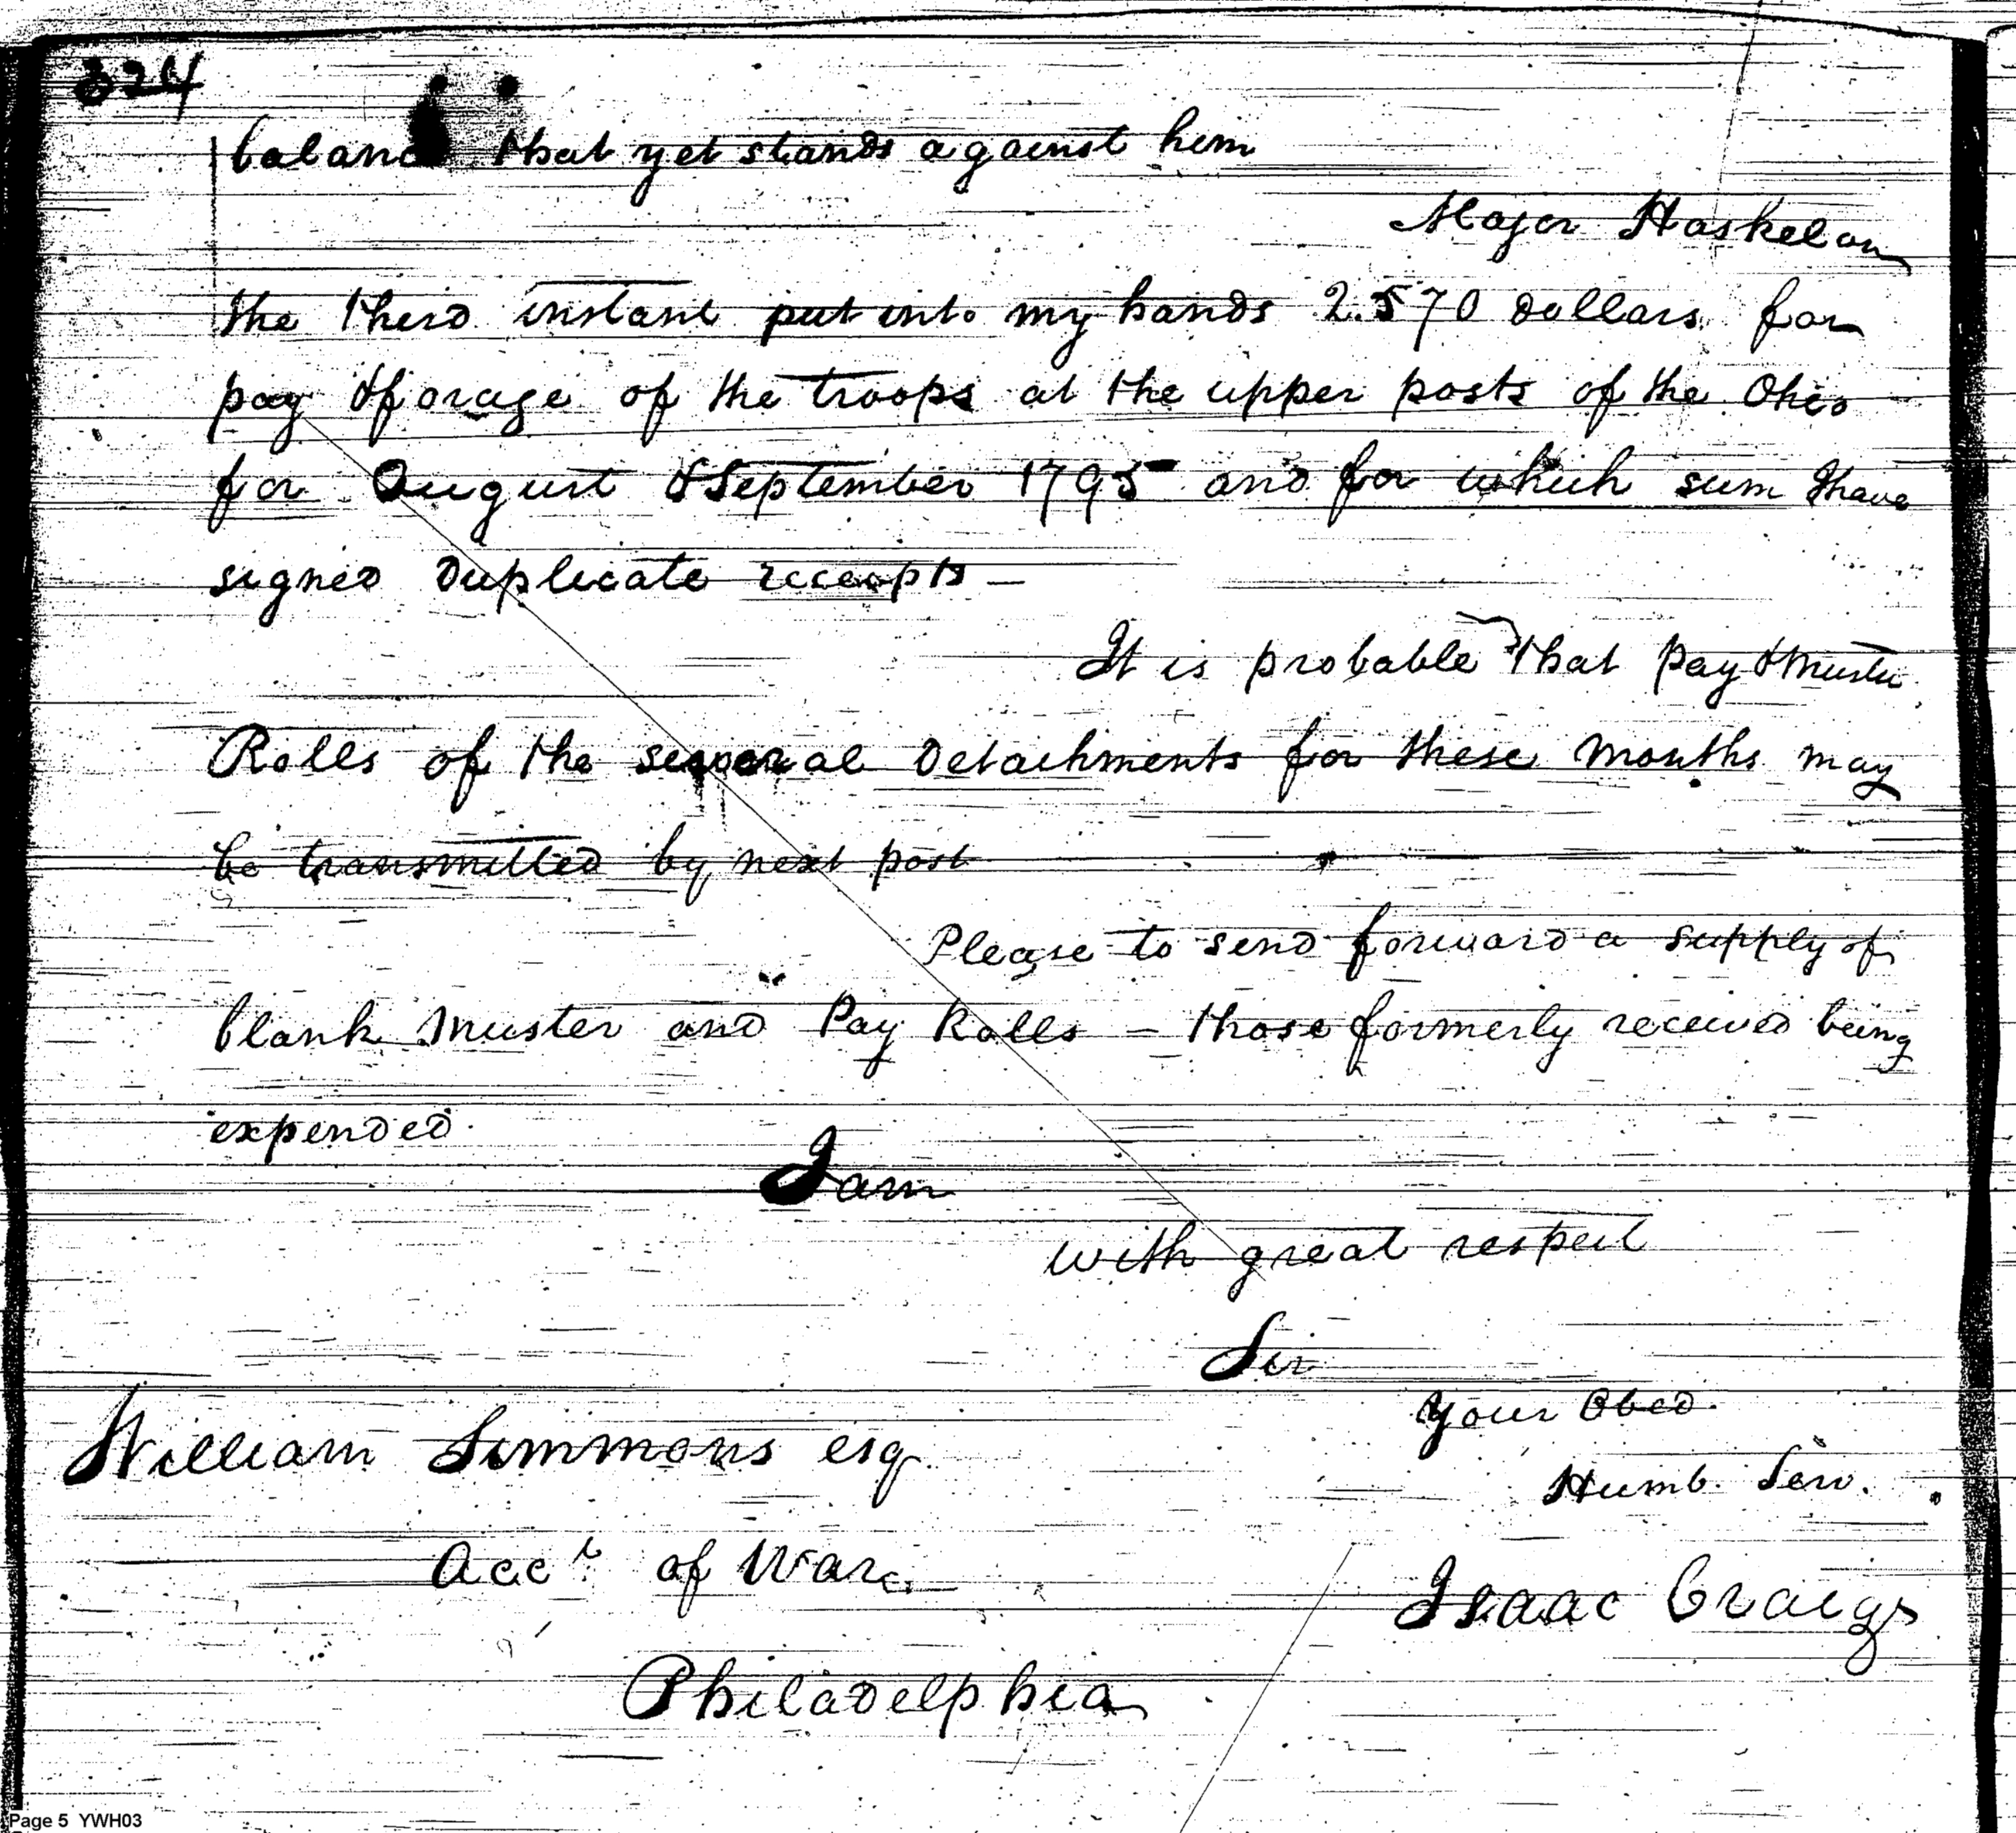 324
balance that yet stands against him
Major Haskel on
the third instant put into my hands 2.570 dollars for
pay & forage of the troops at the upper posts of the Ohio
for August & September 1795 and for which sum I have
signed Duplicate receipts —
It is probable that pay & Muster
Rolls of the several Detachments for these Months may
be transmitted by next post
Please to send forward a supply of
blank Muster and Pay Rolls — those formerly received being
expended.
I am
with great respect
Sir
Your Obed.
William Simmons esq.
Humb. Serv.
Acc.t of War
Isaac Craig
Philadelphia
Page 5 YWH03